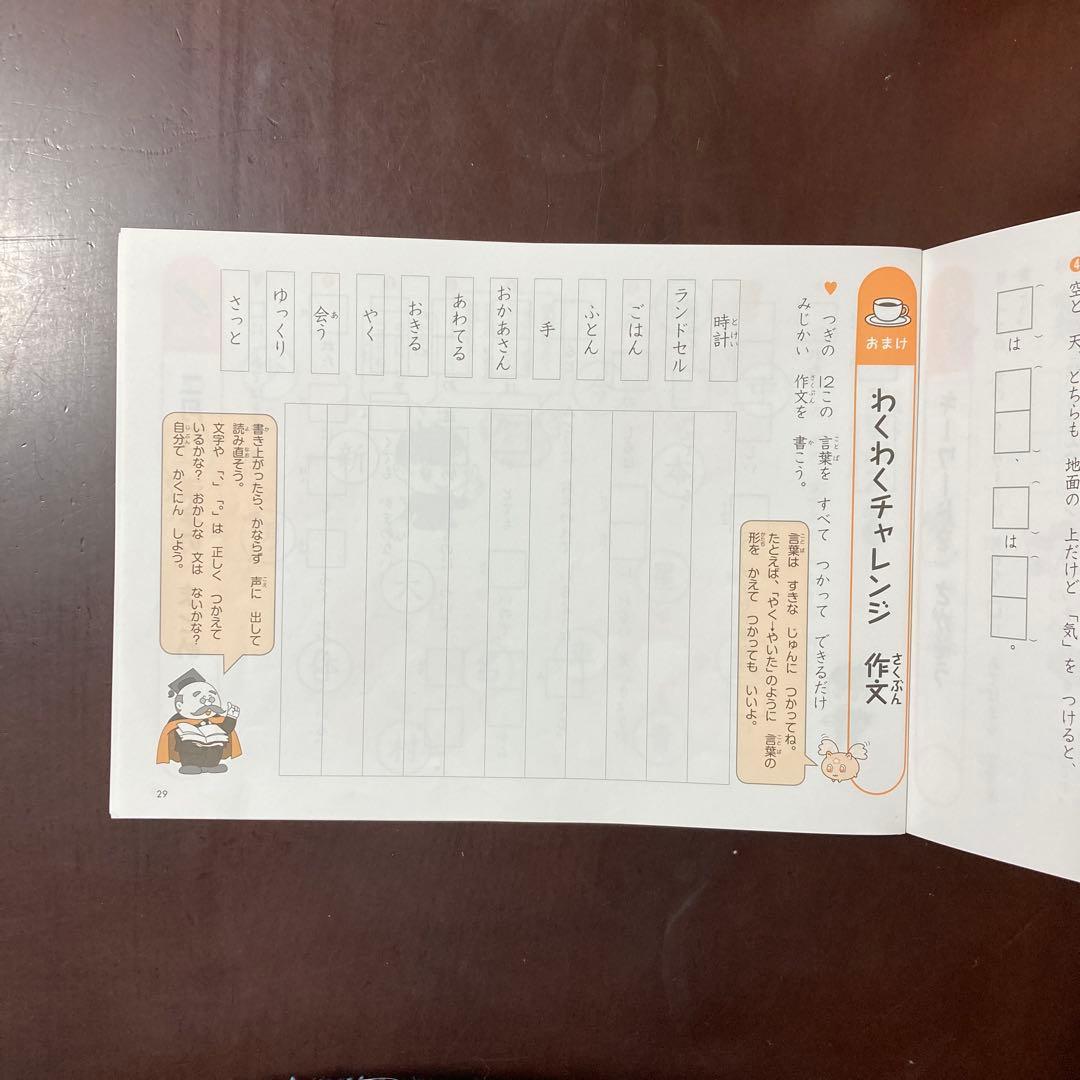 ④
空と 天、どちらも 地面の 上だけど 「気」を つけると、
は
、
は
。
おまけ
わくわくチャレンジ 作文
さくぶん
♥ つぎの 12この 言葉を すべて つかって できるだけ
ことば
みじかい 作文を 書こう。
さくぶん
か
言葉は すきな じゅんに つかってね。
ことば
たとえば、「やく→やいた」のように 言葉の
ことば
形を かえて つかっても いいよ。
かたち
時計
とけい
ランドセル
ごはん
ふとん
手
おかあさん
あわてる
おきる
やく
会う
あ
ゆっくり
さっと
書き上がったら、かならず 声に 出して
か
こえ
読み直そう。
よ
なお
文字や 「、」「。」は 正しく つかえて
いるかな? おかしな 文は ないかな?
自分で かくにん しよう。
じぶん
29